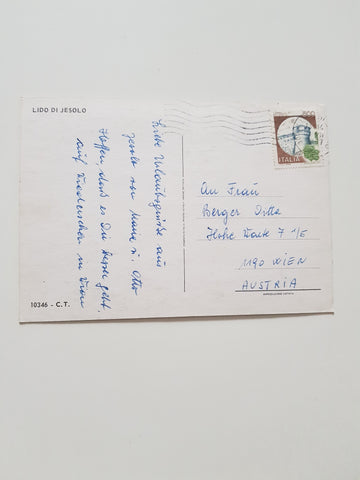 LIDO DI JESOLO
Liebe Urlaubsgrüße aus
Jesolo von Maria u. Otto
Hoffen dass es Dir besser geht.
auf Wiedersehen in Wien
10346 - C.T.
ITALIA
An Frau
Berger Ditta
Hohe Warte 7 1/5
1190 WIEN
AUSTRIA